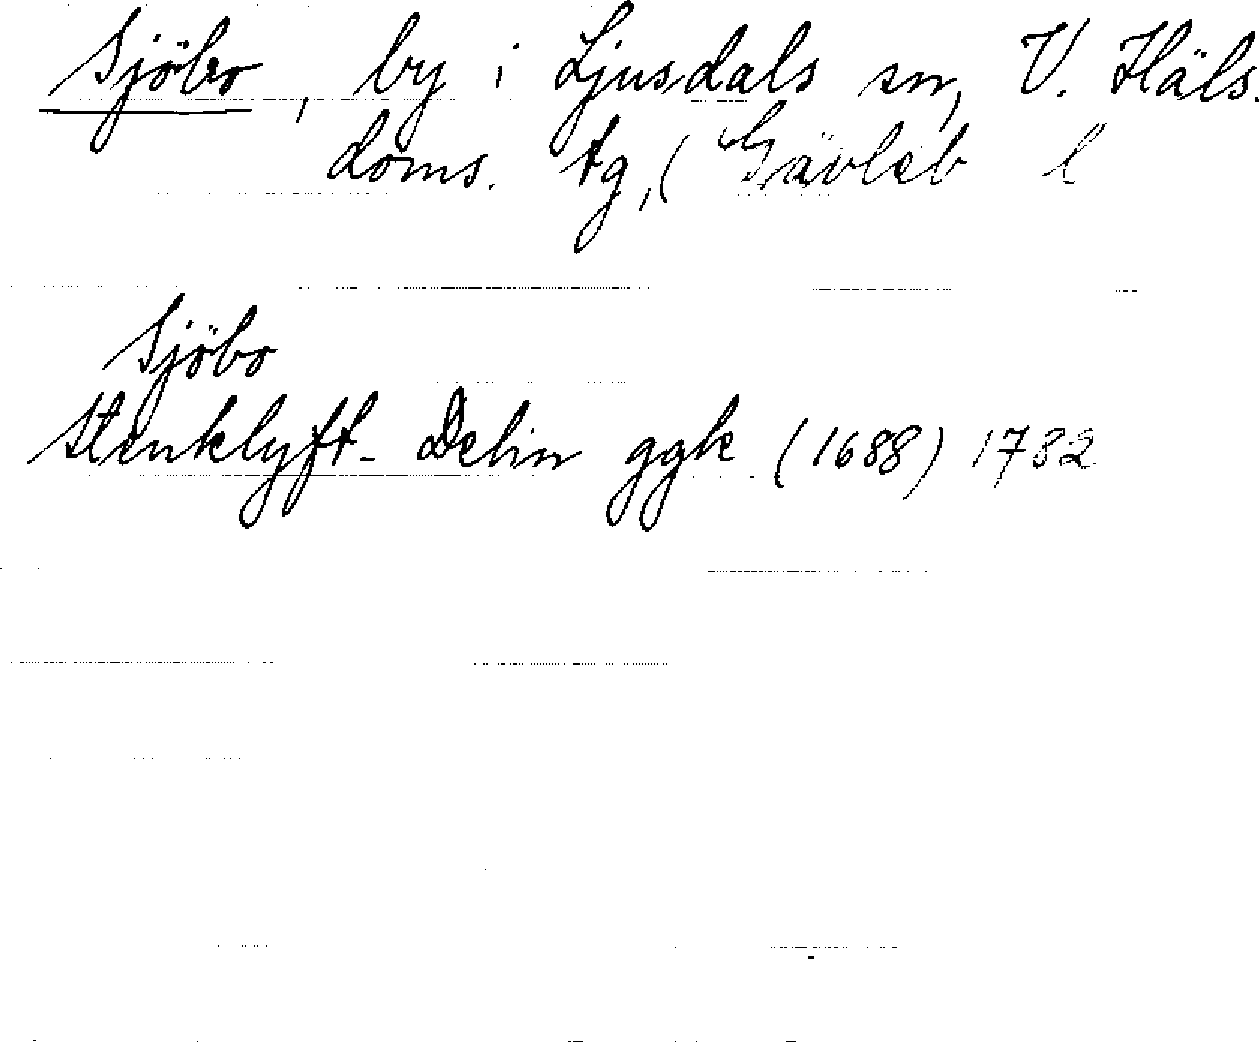 Sjöbo, by i Ljusdals sn, V. Häls.
doms. tg, ( Gävleb l
Sjöbo
Stenklyft- Delin ggk (1688) 1782